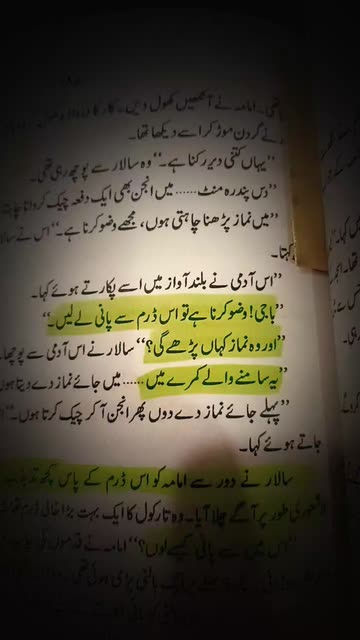 تھی۔ امامہ نے آنکھیں کھول دیں۔
نے گردن موڑ کر اسے دیکھا تھا۔
”یہاں کتنی دیر رکنا ہے۔“ وہ سالار سے پوچھ رہی تھی۔
”دس پندرہ منٹ...... میں انجن بھی ایک دفعہ چیک کروانا چاہتا
”میں نماز پڑھنا چاہتی ہوں، مجھے وضو کرنا ہے۔“ اس نے سالا
کہتا۔
”اس آدمی نے بلند آواز میں اسے پکارتے ہوئے کہا۔
”باجی! وضو کرنا ہے تو اس ڈرم سے پانی لے لیں۔“
”اور وہ نماز کہاں پڑھے گی؟“ سالار نے اس آدمی سے پوچھا۔
”یہ سامنے والے کمرے میں...... میں جائے نماز دے دیتا ہوں
”پہلے جائے نماز دے دوں پھر انجن آ کر چیک کرتا ہوں۔“
جاتے ہوئے کہا۔
سالار نے دور سے امامہ کو اس ڈرم کے پاس کچھ
طور پر آگے چلا آیا۔ وہ تارکول کا ایک بہت بڑا خالی ڈرم تھا
”اس میں سے پانی کیسے لوں؟“ امامہ نے قدموں
بالٹی پڑی ہوئی تھی۔